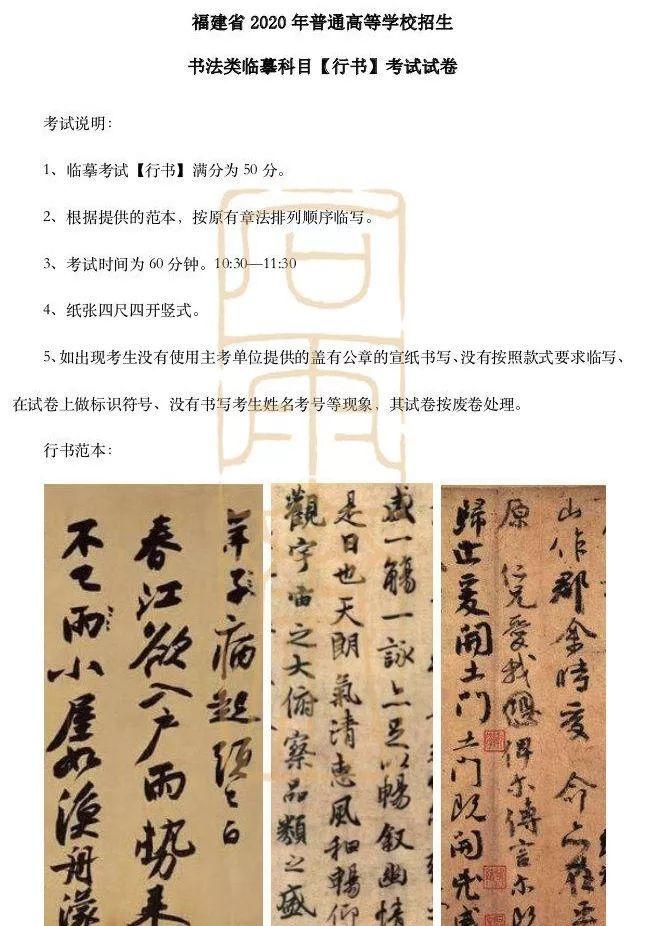 福建省 2020 年普通高等学校招生
书法类临摹科目【行书】考试试卷
考试说明：
1、临摹考试【行书】满分为 50 分。
2、根据提供的范本，按原有章法排列顺序临写。
3、考试时间为 60 分钟。10:30—11:30
4、纸张四尺四开竖式。
5、如出现考生没有使用主考单位提供的盖有公章的宣纸书写、没有按照款式要求临写、
在试卷上做标识符号、没有书写考生姓名考号等现象，其试卷按废卷处理。
行书范本：
年子病起須已白
春江欲入戶雨勢来
不已雨小屋如漁舟濛
盛一觴一詠亦足以暢叙幽情
是日也天朗氣清惠風和暢仰
觀宇宙之大俯察品類之盛
山作郡余時受 命亦在平
原 仁兄愛我俾尔傳言尔既
歸止爰開土門土門既開凶威